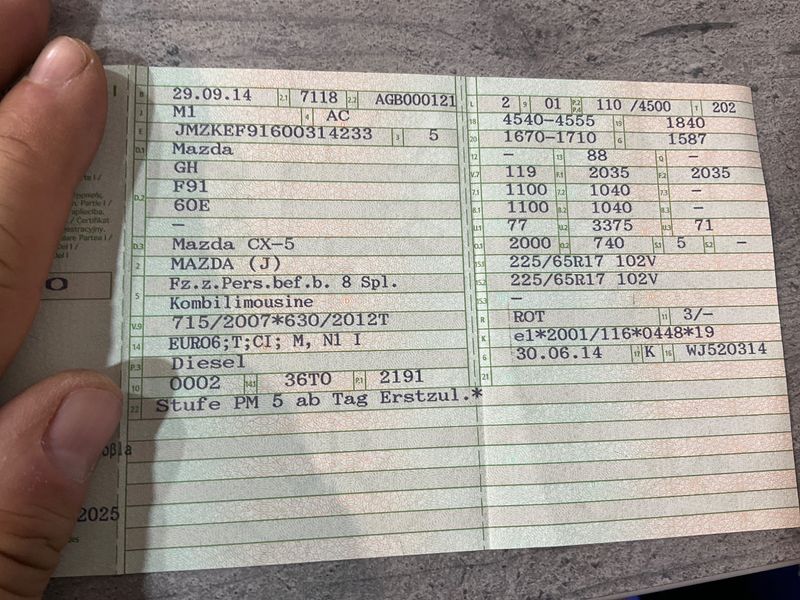 B 29.09.14 2.1 7118 2.2 AGB000121
J M1 4 AC
E JMZKEF91600314233 3 5
D.1 Mazda
GH
D.2 F91
60E
–
D.3 Mazda CX-5
2 MAZDA (J)
5 Fz.z.Pers.bef.b. 8 Spl.
Kombilimousine
V.9 715/2007*630/2012T
14 EURO6;T;CI; M, N1 I
P.3 Diesel
10 0002 14.1 36T0 P.1 2191
22 Stufe PM 5 ab Tag Erstzul.*
L 2 9 01 P.2 P.4 110 /4500 T 202
18 4540-4555 19 1840
20 1670-1710 G 1587
12 – 13 88 Q –
V.7 119 F.1 2035 F.2 2035
7.1 1100 7.2 1040 7.3 –
8.1 1100 8.2 1040 8.3 –
U.1 77 U.2 3375 U.3 71
O.1 2000 O.2 740 S.1 5 S.2 –
15.1 225/65R17 102V
15.2 225/65R17 102V
15.3 –
R ROT 11 3/–
K e1*2001/116*0448*19
6 30.06.14 17 K 16 WJ520314
21
I
Partie I /
/ Certifikat
Parte I /
Del I /
Del I
O
oβla
2025